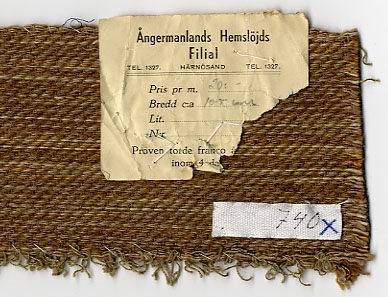 Ångermanlands Hemslöjds
Filial
TEL. 1327. HÄRNÖSAND TEL. 1327.
Pris pr m. 20:-
Bredd c:a
Lit.
N:r
Proven torde franco
inom 4
740x